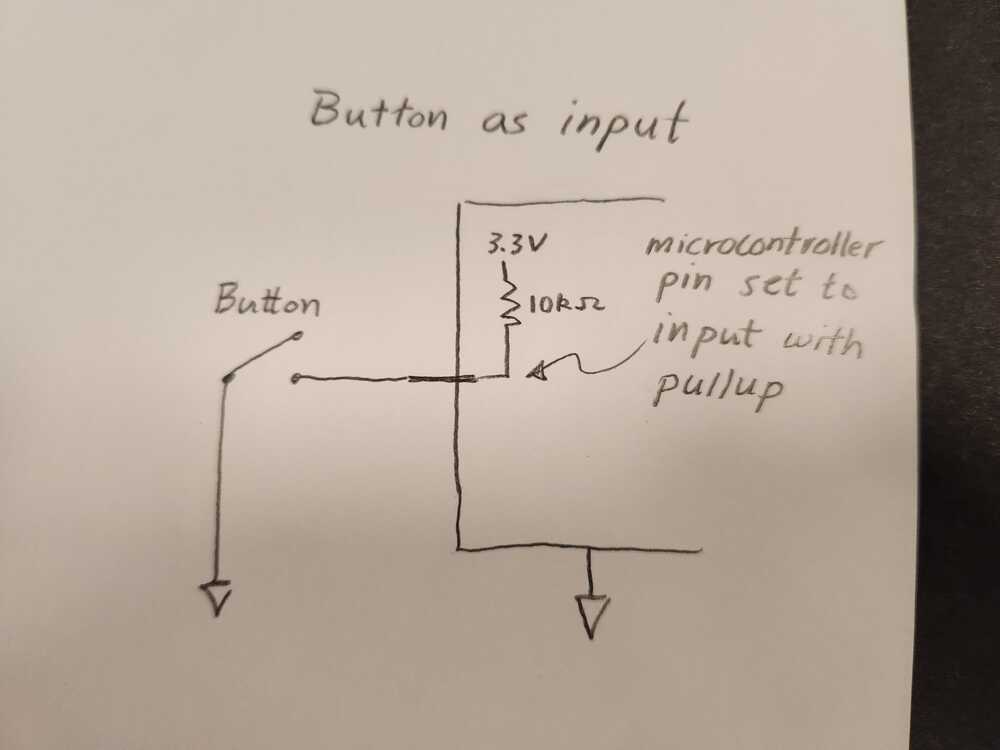 Button as input
3.3V
10kΩ
Button
microcontroller
pin set to
input with
pullup